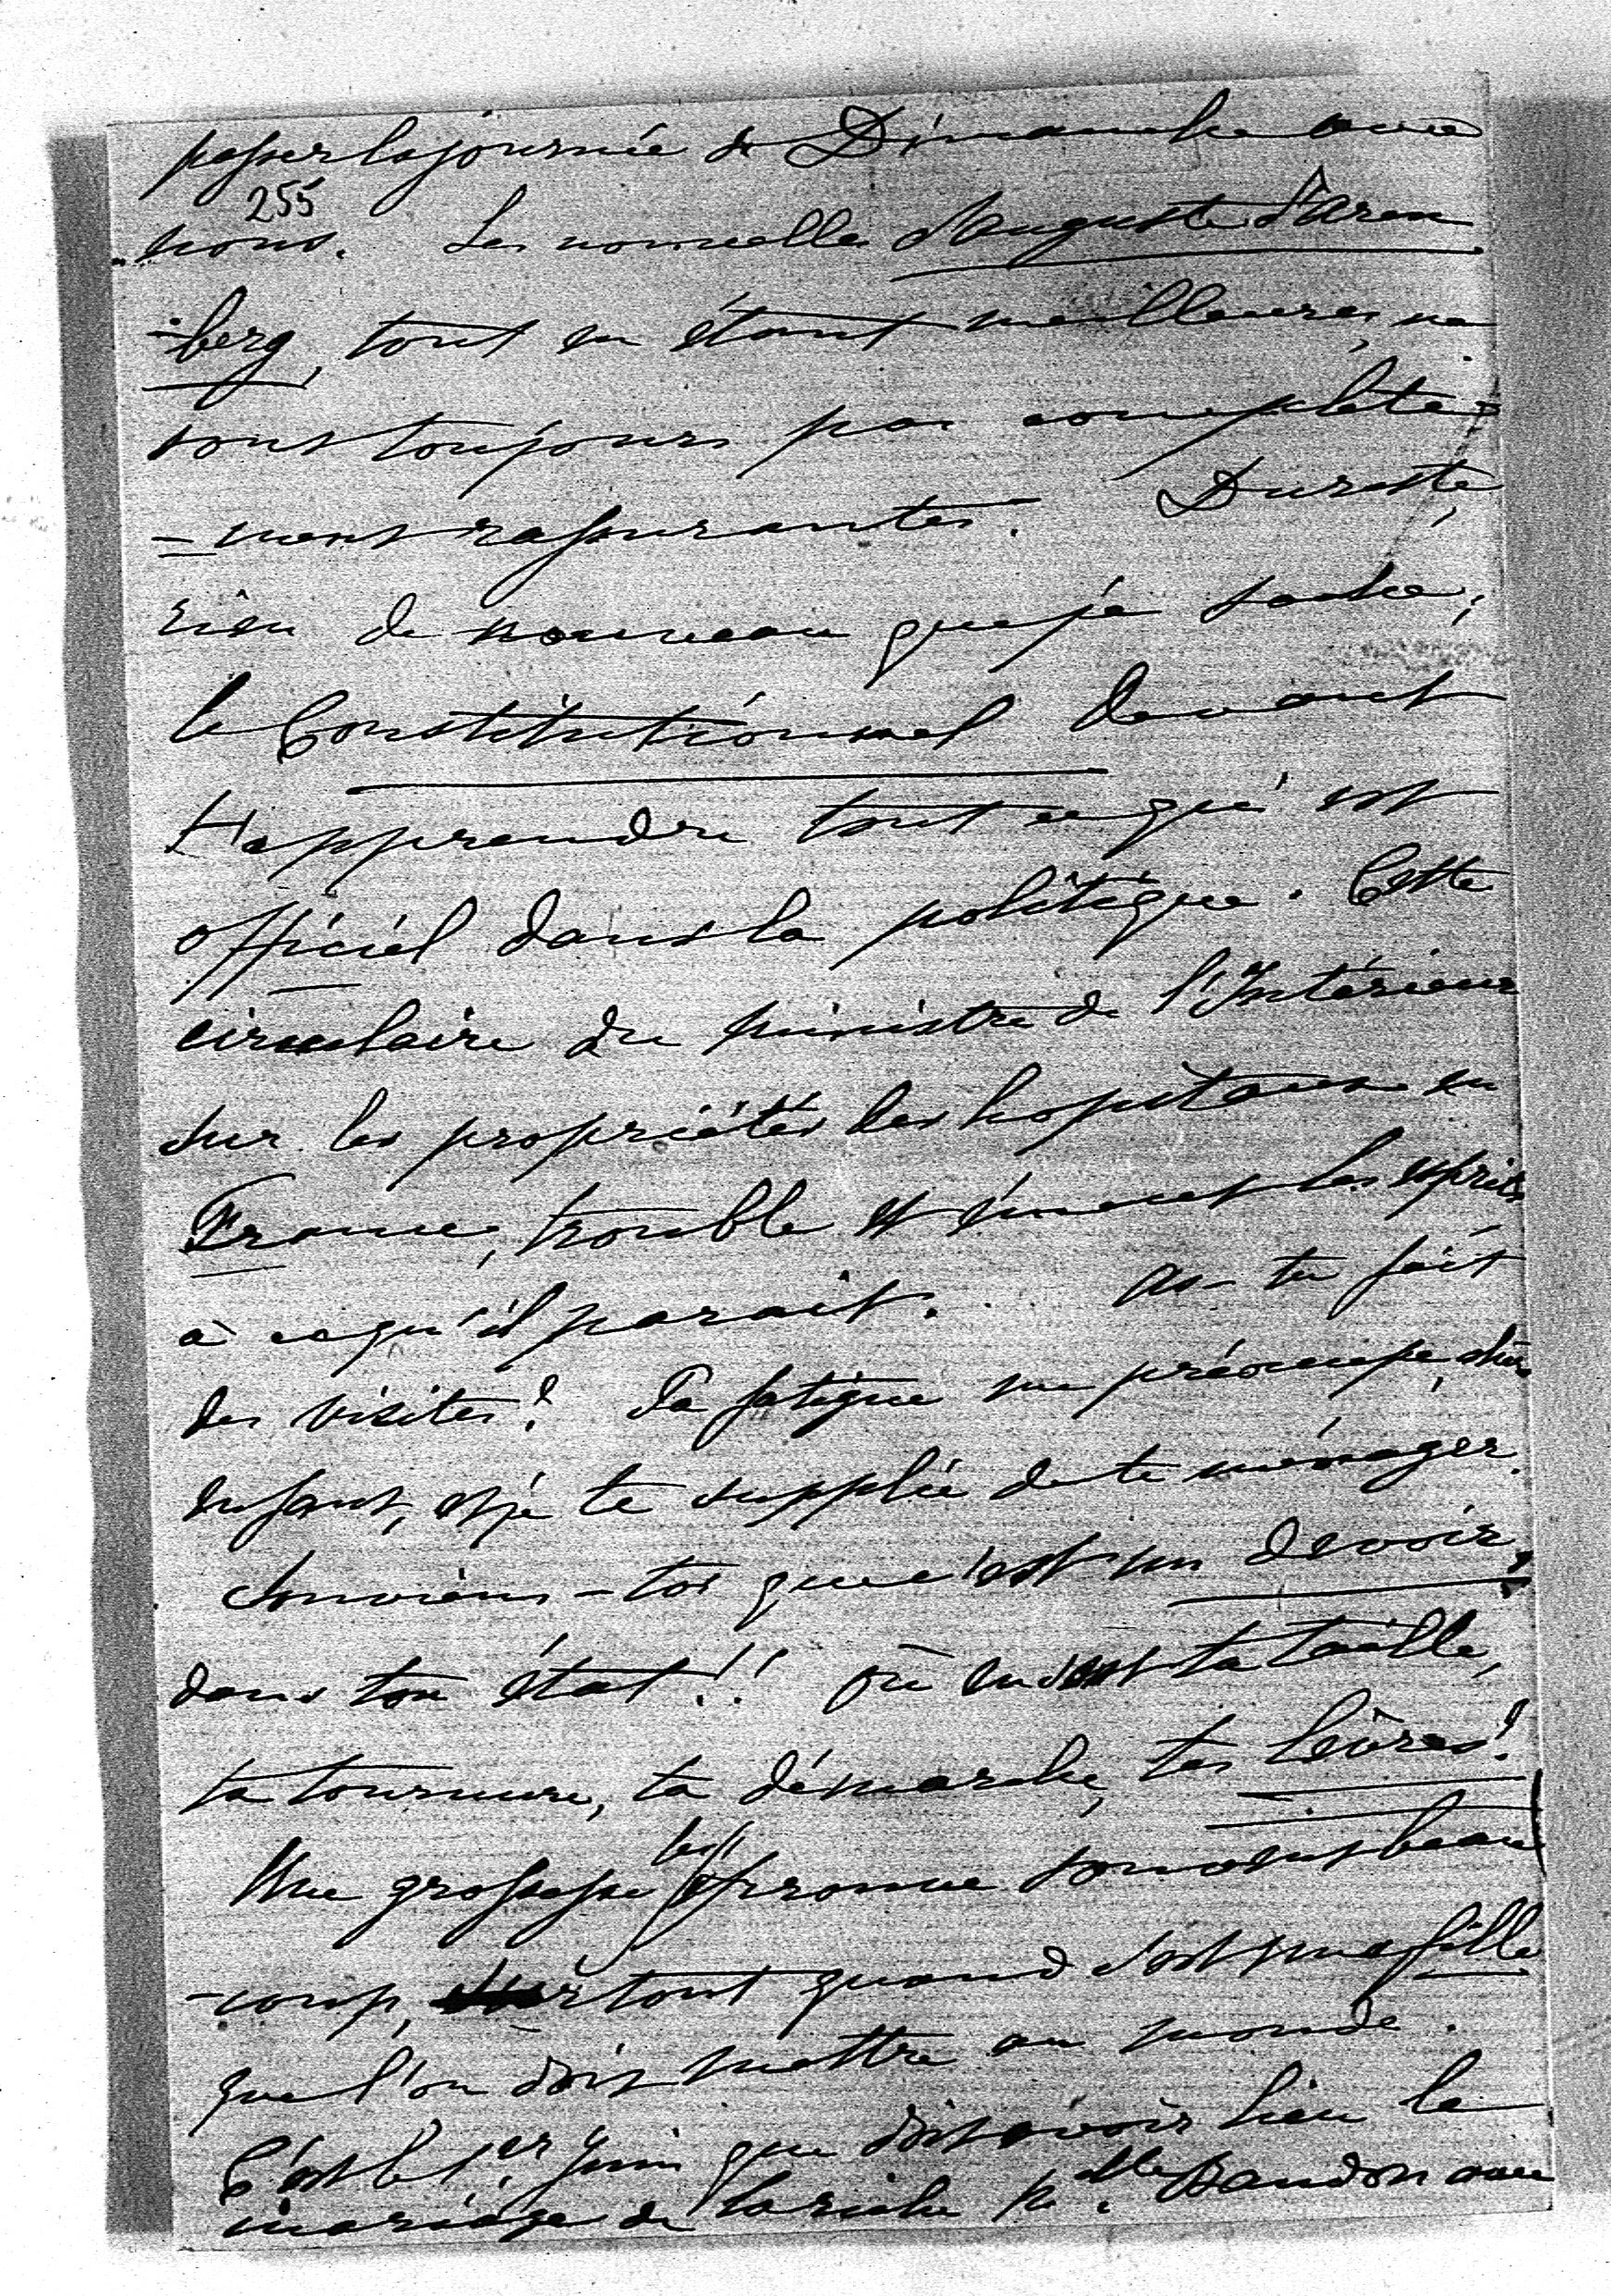 passer la journée de Dimanche avec
255
nous. Les nouvelles d'Auguste d'Aren
-berg, tout en étant meilleures, ne
sont toujours pas complète-
-ment rassurantes. Dureste,
rien de nouveau que je sache;
le Constitutionnel devant
t'apprendre tout ce qui est
officiel dans la politique. Cette
circulaire du ministre de l'Intérieur
sur les propriétés des hopitaux en
France, trouble et émeut les esprits
à ce qu'il parait. As-tu fait
des visites? Ta fatigue me préoccupe, chère
enfant, et je te supplie de te ménager.
Souviens-toi que c'est un devoir,
dans ton état!! Où en est ta taille,
ta tournure, ta démarche, tes lèvres?
Une grossesse les
souvent beau
-coup, surtout quand c'est une fille
que l'on doit mettre au monde.
C'est le 1er Juin que doit avoir lieu le
mariage de la riche Melle Randon avec